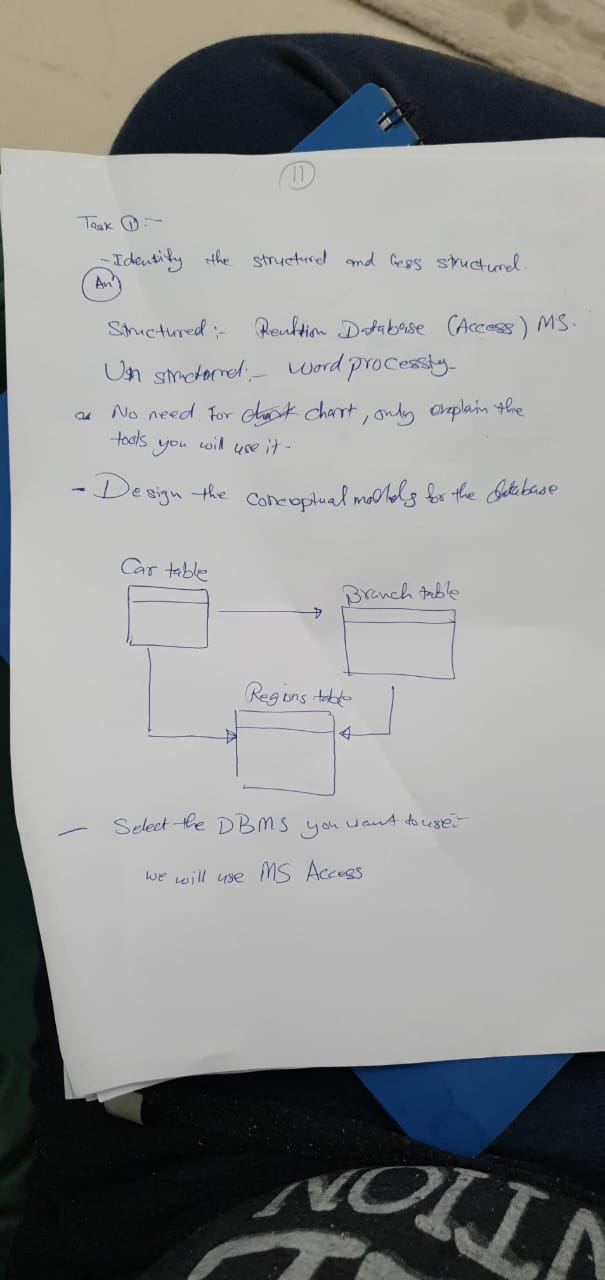 11
Task ① :-
- Identify the structured and less structured.
Ans
Structured :- Database (Access) MS.
Un structured :- word processing
No need for chart, only explain the
tools you will use it -
- Design the conceptual models for the database
Car table
Branch table
Regions table
- Select the DBMS you want to use :-
we will use MS Access
NOITI